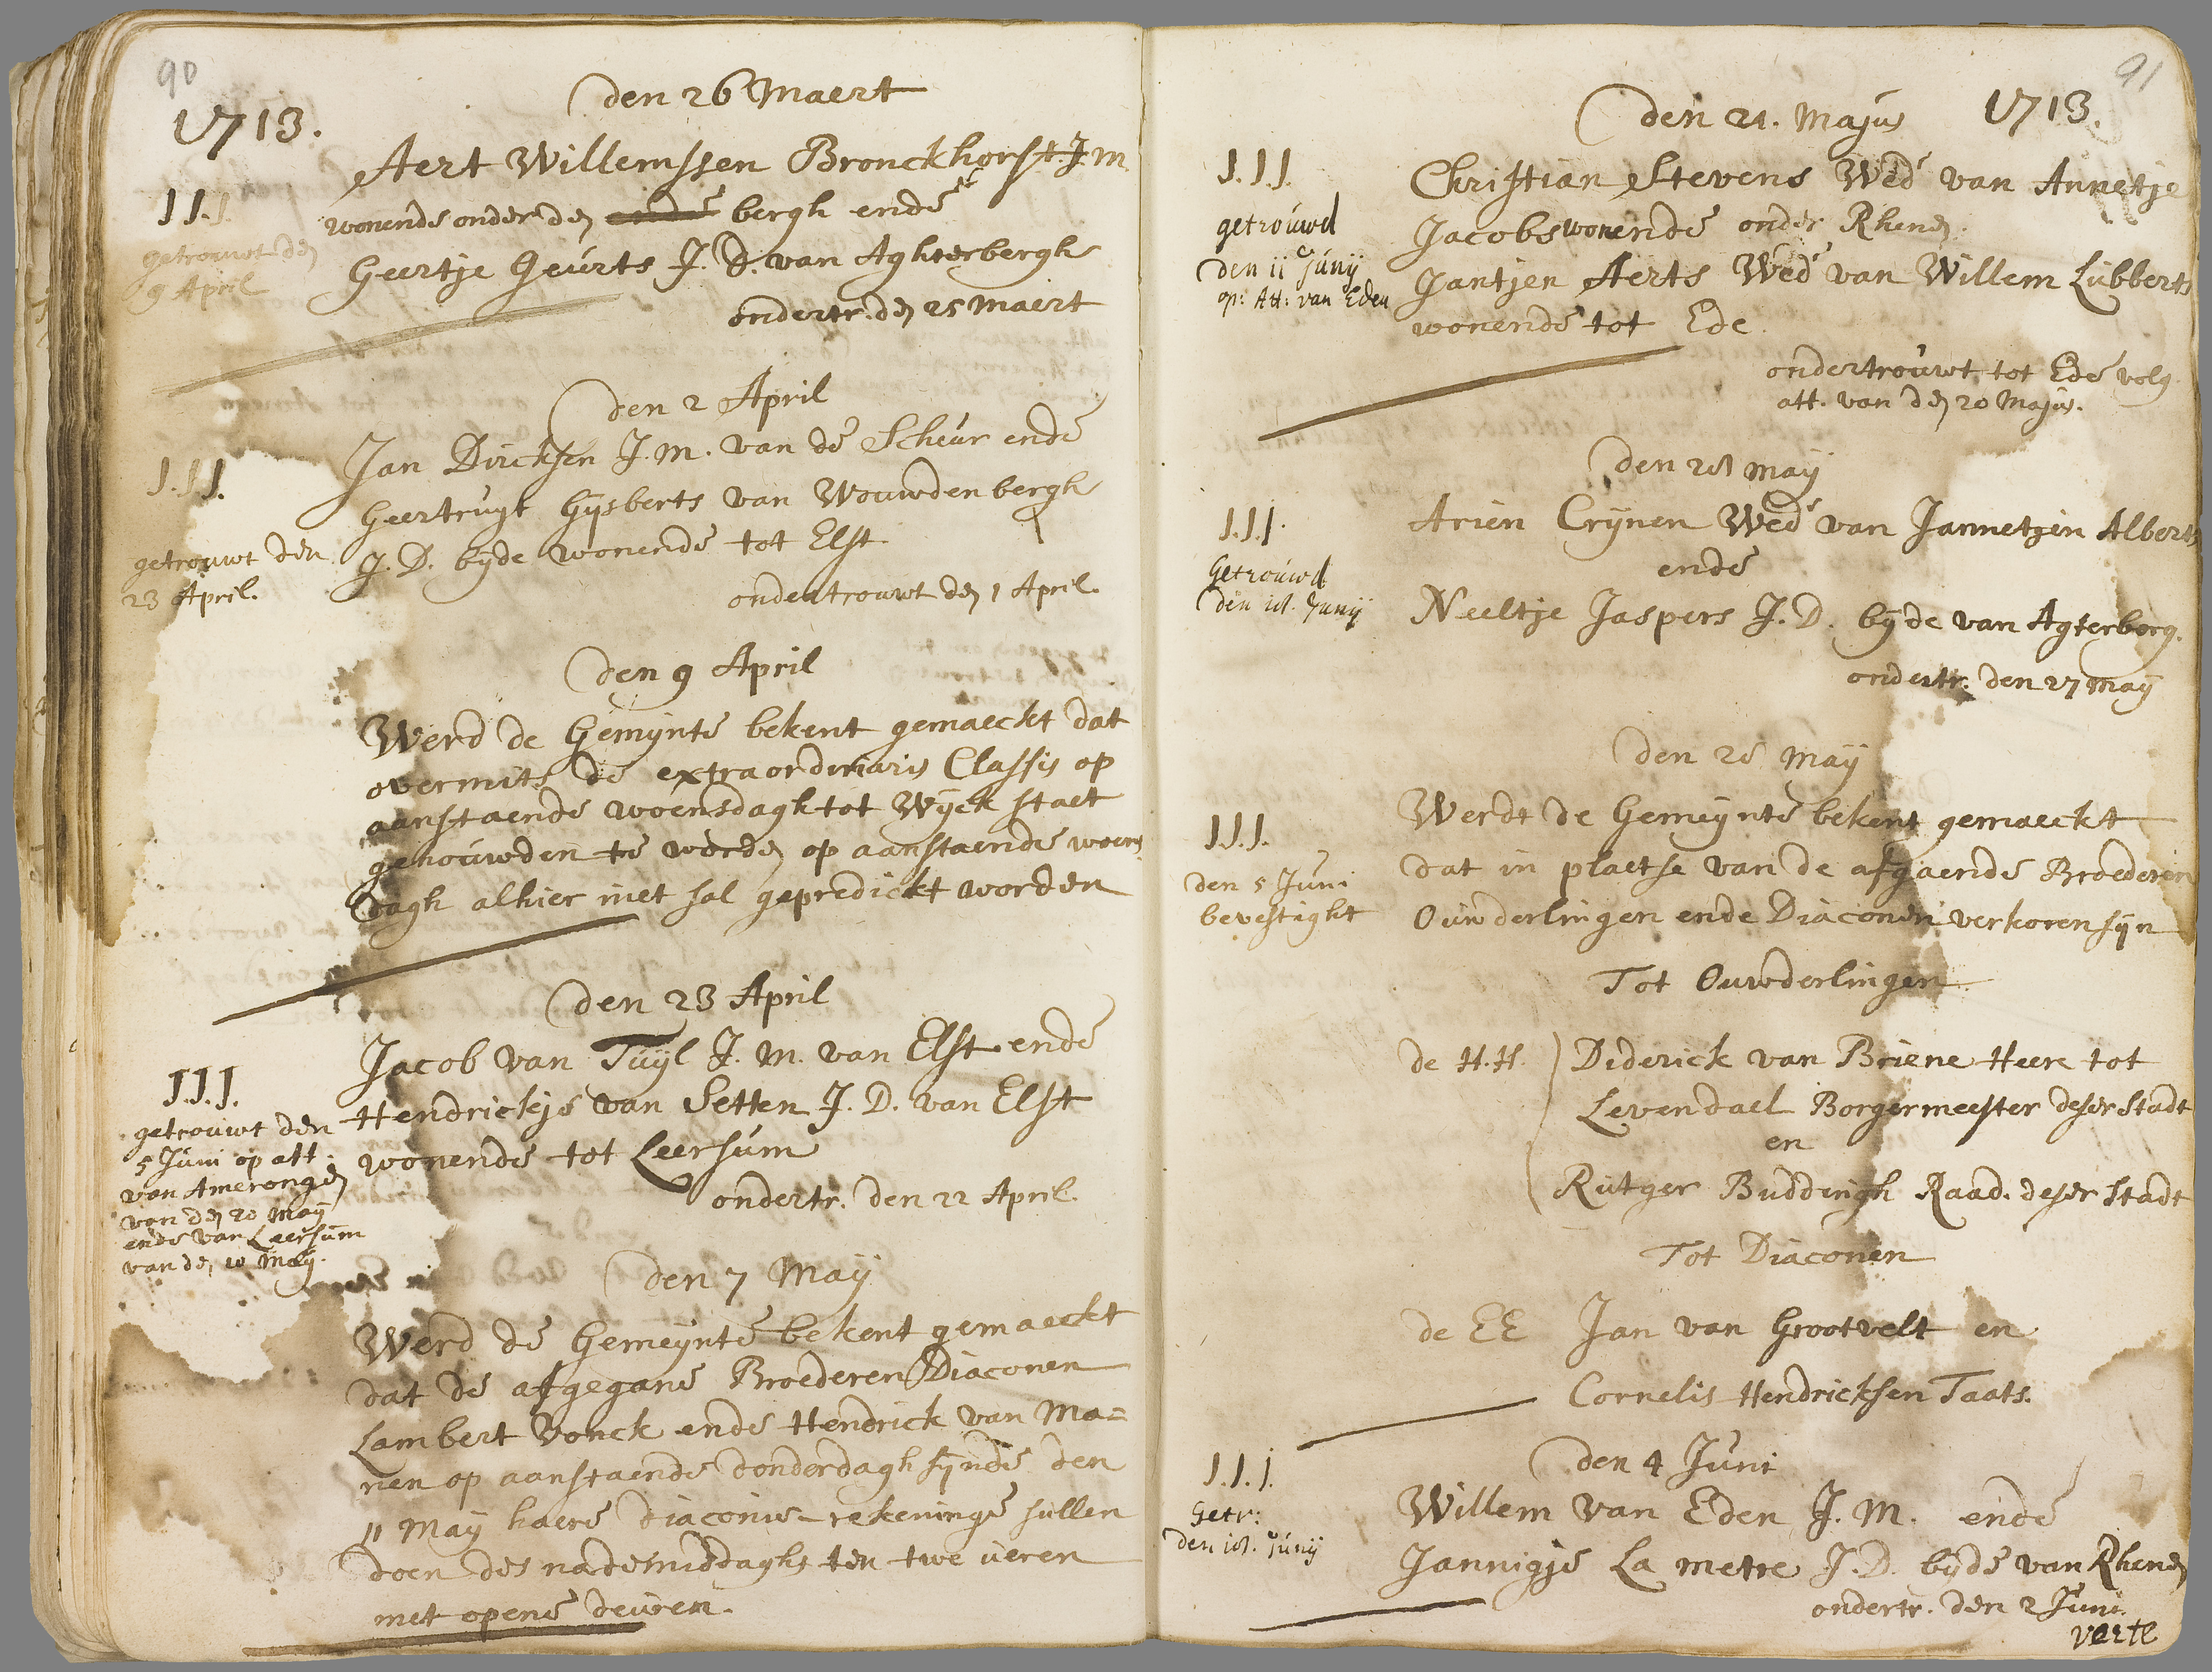 90
1713.
den 26 Maert
Aert Willemssen Bronckhorst J. M.
wonende onder den ende bergh ende
Geertje Geurts J. D. van Aghterbergh
ondertr. den 25 Maert
J J. J.
getrouwt den
9 April
den 2 April
Jan Dircksen J. M. van de Scheur ende
Geertruyt Gijsberts van Wouwdenbergh
J. D. byde wonende tot Elst
ondertrouwt den 1 April.
J. J J.
getrouwt den
23 April.
den 9 April
Werd de Gemynte bekent gemaeckt dat
overmits de extraordinaris Classis op
aanstaende woensdagh tot Wijck staet
gehouwden te worden op aanstaende woens
dagh alhier niet sal gepredickt worden
den 23 April
Jacob van Tuyl J. M. van Elst ende
Hendrickje van Setten J. D. van Elst
wonende tot Leersum
ondertr. den 22 April.
J. J. J.
getrouwt den
5 Juni op att.
van Amerongen
van den 20 May
ende van Leersum
van den 10 May.
den 7 May
Werd de Gemeynte bekent gemaeckt
dat de afgegane Broederen Diaconen
Lambert Vonck ende Hendrick van Ma=
nen op aanstaende donderdagh sijnde den
11 May haere diaconie-rekeninge sullen
doen des nademiddaghs ten twe ueren
met opene deuren.
91
1713.
den 21. Majus
Christian Stevens Wed van Annetje
Jacobs wonende onder Rhenen
Jantjen Aerts Wed van Willem Lubberts
wonende tot Ede
ondertrouwt tot Ede volg.
att. van den 20 Majus.
J. J. J.
getrouwd
den 11 Junij
op: Att: van Eden
den 28 May
Arien Crynen Wed van Jannetjen Alberts
ende
Neeltje Jaspers J. D. byde van Agterberg.
ondertr. den 27 May
J. J. J.
Getrouwd
den 18. Junij
den 28 May
Werdt de Gemeynte bekent gemaeckt
dat in plaetse van de afgaende Broederen
Ouwderlingen ende Diaconen verkoren sijn
J. J. J.
den 5 Juni
bevestight
Tot Ouwderlingen
de H. H. Diderick van Briene Heere tot
Levendael Borgermeester deser stadt
en
Rutger Buddingh Raad. deser stadt
Tot Diaconen
de EE Jan van Grootvelt en
Cornelis Hendricksen Taats.
den 4 Juni
Willem van Eden J. M. ende
Jannigje La metre J. D. byde van Rhenen
ondertr. den 2 Juni.
J. J. J.
Getr:
den 18. Junij
verte